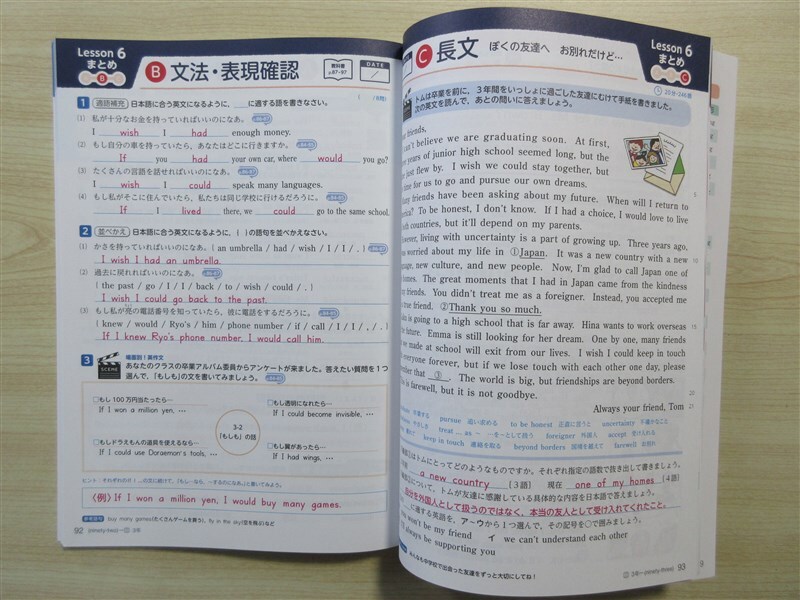 Lesson 6
まとめ
B
B 文法・表現確認
教科書
p.87-97
DATE
1 適語補充 日本語に合う英文になるように,　に適する語を書きなさい。
(1) 私が十分なお金を持っていればいいのになあ。
I wish I had enough money.
(2) もし自分の車を持っていたら, あなたはどこに行きますか。
If you had your own car, where would you go?
(3) たくさんの言語を話せればいいのになあ。
I wish I could speak many languages.
(4) もし私がそこに住んでいたら, 私たちは同じ学校に行けるだろうに。
If I lived there, we could go to the same school.
2 並べかえ 日本語に合う英文になるように, ( )の語句を並べかえなさい。
(1) かさを持っていればいいのになあ。 ( an umbrella / had / wish / I / I / . )
I wish I had an umbrella.
(2) 過去に戻れればいいのになあ。
( the past / go / I / I / back / to / wish / could / . )
I wish I could go back to the past.
(3) もし私が亮の電話番号を知っていたら, 彼に電話をするだろうに。
( knew / would / Ryo's / him / phone number / if / call / I / I / , / . )
If I knew Ryo's phone number, I would call him.
3 場面別!英作文
SCENE
あなたのクラスの卒業アルバム委員からアンケートが来ました。答えたい質問を1つ
選んで,「もしも」の文を書いてみましょう。
□もし100万円当たったら…
If I won a million yen, …
□もし透明になれたら…
If I could become invisible, …
3-2
「もしも」の話
□もしドラえもんの道具を使えるなら…
If I could use Doraemon's tools, …
□もし翼があったら…
If I had wings, …
(例) If I won a million yen, I would buy many games.
buy many games(たくさんゲームを買う), fly in the sky(空を飛ぶ)など
92 (ninety-two)
C 長文 ぼくの友達へ お別れだけど…
Lesson 6
まとめ
C
トムは卒業を前に, 3年間をいっしょに過ごした友達にむけて手紙を書きました。
次の英文を読んで, あとの問いに答えましょう。
friends,
can't believe we are graduating soon. At first,
years of junior high school seemed long, but the
just flew by. I wish we could stay together, but
time for us to go and pursue our own dreams.
friends have been asking about my future. When will I return to
To be honest, I don't know. If I had a choice, I would love to live
countries, but it'll depend on my parents.
living with uncertainty is a part of growing up. Three years ago,
worried about my life in ①Japan. It was a new country with a new
new culture, and new people. Now, I'm glad to call Japan one of
The great moments that I had in Japan came from the kindness
friends. You didn't treat me as a foreigner. Instead, you accepted me
true friend. ②Thank you so much.
is going to a high school that is far away. Hina wants to work overseas
future. Emma is still looking for her dream. One by one, many friends
made at school will exit from our lives. I wish I could keep in touch
everyone forever, but if we lose touch with each other one day, please
that ③. The world is big, but friendships are beyond borders.
is farewell, but it is not goodbye.
Always your friend, Tom
pursue 追い求める to be honest 正直に言うと uncertainty 不確かなこと
treat … as ~ …を~として扱う foreigner 外国人 accept 受け入れる
keep in touch 連絡を取る beyond borders 国境を越えて farewell お別れ
はトムにとってどのようなものですか。それぞれ指定の語数で抜き出して書きましょう。
a new country [3語] 現在 one of my homes [4語]
について, トムが友達に感謝している具体的な内容を日本語で答えましょう。
自分を外国人として扱うのではなく、本当の友人として受け入れてくれたこと。
に適する英語を, ア~ウから1つ選んで, その記号を○で囲みましょう。
won't be my friend イ we can't understand each other
always be supporting you
みんなも中学校で出会った友達をずっと大切にしてね!
(ninety-three) 93